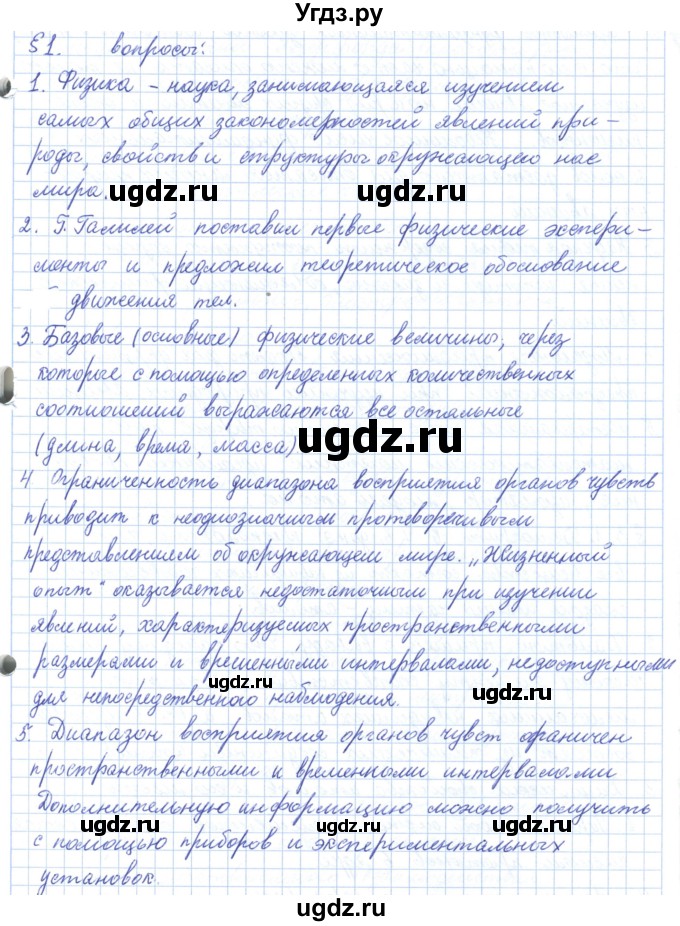 Угдз.ру
§1. вопросы:
1. Физика – наука, занимающаяся изучением
самых общих закономерностей явлений при-
роды, свойств и структуры окружающего нас
мира.
ugdz.ru ugdz.ru
2. Г. Галилей поставил первые физические экспери-
менты и предложил теоретическое обоснование
движения тел.
3. Базовые (основные) физические величины, через
которые с помощью определенных количественных
соотношений выражаются все остальные
(длина, время, масса)
ugdz.ru
4 Ограниченность диапазона восприятия органов чувств
приводит к неоднозначным противоречивым
представлением об окружающем мире. „Жизненный
опыт“ оказывается недостаточным при изучении
явлений, характеризуемых пространственными
размерами и временными интервалами, недоступными
ugdz.ru ugdz.ru
для непосредственного наблюдения.
5. Диапазон восприятия органов чувст ограничен
пространственными и временными интервалами
Дополнительную информацию можно получить
ugdz.ru ugdz.ru ugdz.ru
с помощью приборов и экспериментальных
установок.
ugdz.ru